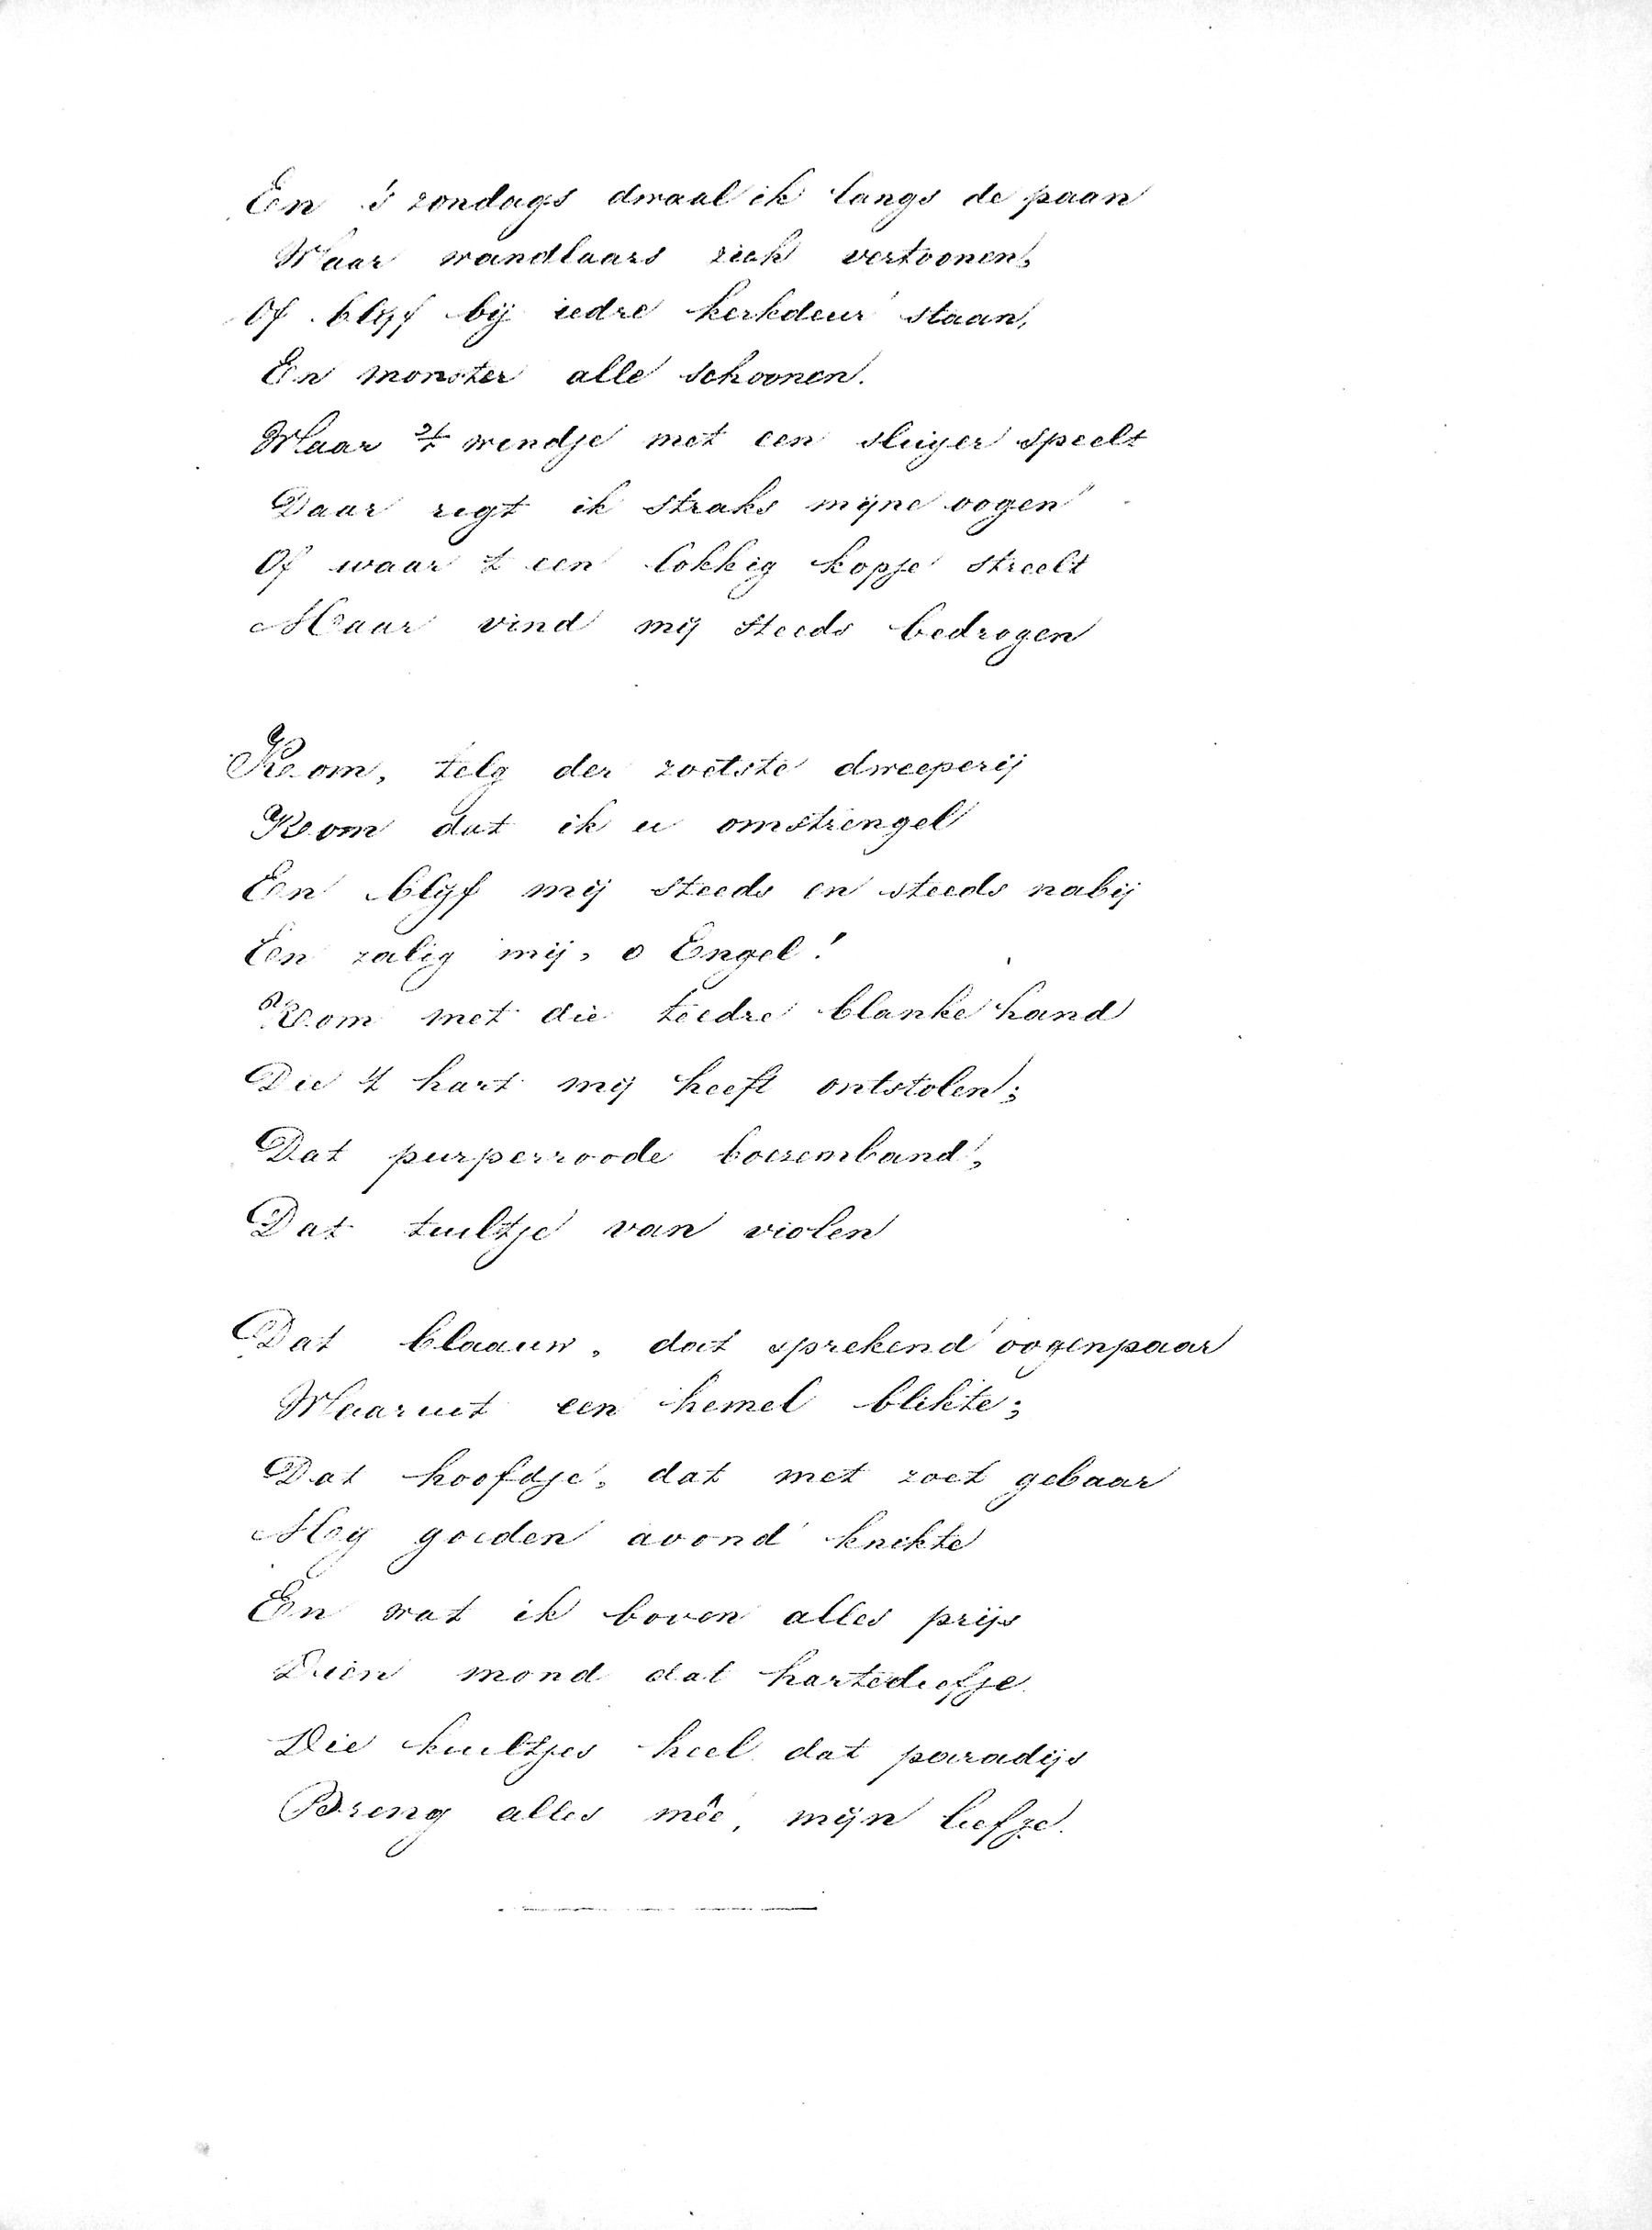 En 's zondags dwaal ik langs de paan
Waar wandlaars zich vertoonen,
Of blijf bij iedre kerkdeur staan,
En monster alle schoonen.
Waar 't windje met een sluijer speelt
Daar rigt ik straks mijne oogen
Of waar 't een lokkig kopje streelt
Maar vind mij steeds bedrogen

Kom, telg der zoetste dweeperij
Kom dat ik u omstrengel
En blijf mij steeds en steeds nabij
En zalig mij, o Engel!
Kom met die teedre blanke hand
Die 't hart mij heeft ontstolen;
Dat purperroode boezemband,
Dat tuiltje van violen

Dat blaauw, dat sprekend oogenpaar
Waaruit een hemel blikte;
Dat hoofdje, dat met zoet gebaar
Mij goeden avond knikte
En wat ik boven alles prijs
Dien mond dat hartediefje
Die kuiltjes heel dat paradijs
Breng alles mêe, mijn liefje.